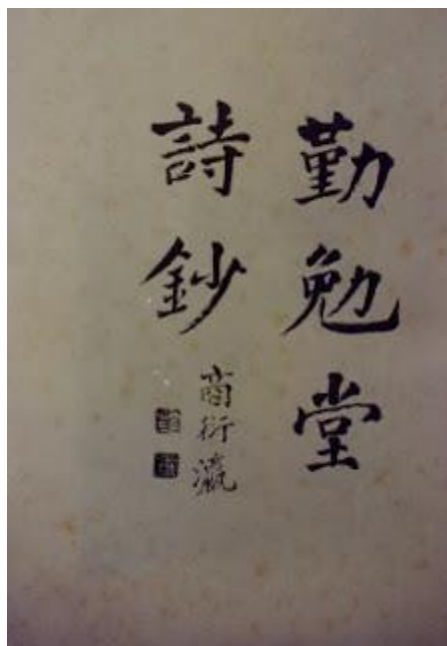 勤勉堂
詩鈔
商衍瀛